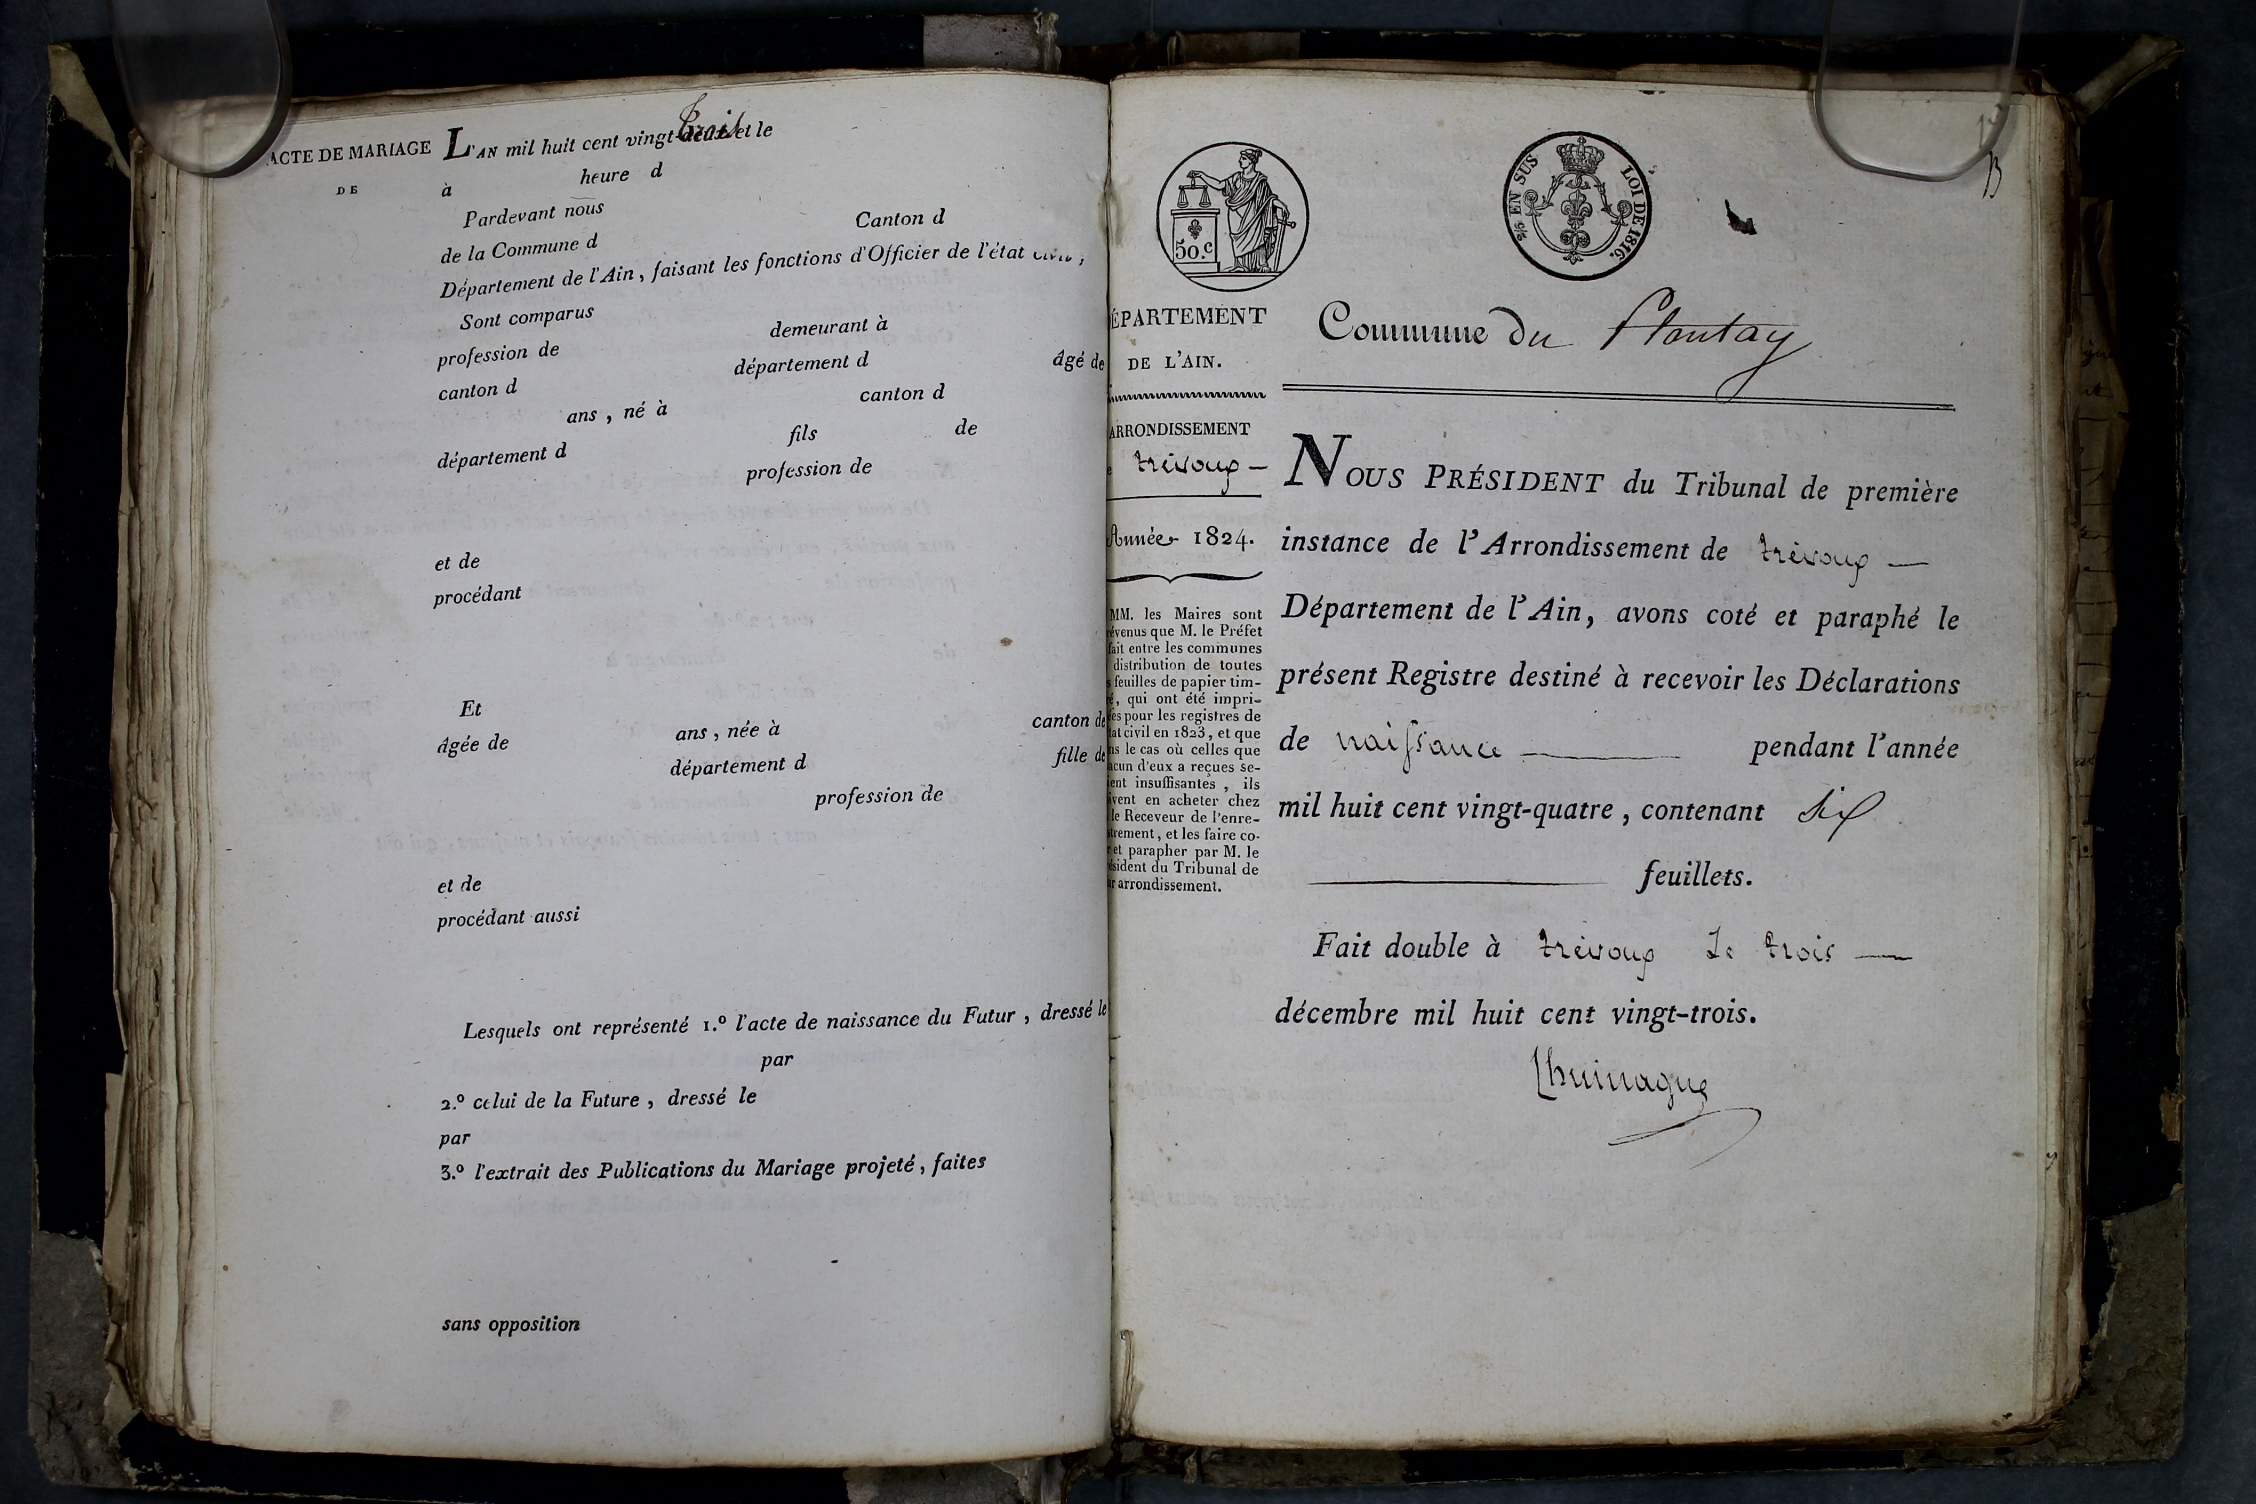 ACTE DE MARIAGE
DE
L'AN mil huit cent vingt-deux trois et le
à heure d
Pardevant nous
de la Commune d Canton d
Département de l'Ain, faisant les fonctions d'Officier de l'état civil,
Sont comparus
profession de demeurant à
canton d département d âgé de
ans, né à canton d
département d fils de
profession de
et de
procédant
Et
âgée de ans, née à canton de
département d fille de
profession de
et de
procédant aussi
Lesquels ont représenté 1.º l'acte de naissance du Futur, dressé le
par
2.º celui de la Future, dressé le
par
3.º l'extrait des Publications du Mariage projeté, faites
sans opposition
50.c
2/5 EN SUS
LOI DE 1816.
ÉPARTEMENT
DE L'AIN.
ARRONDISSEMENT
e trévoux
Année 1824.
MM. les Maires sont
révenus que M. le Préfet
fait entre les communes
distribution de toutes
s feuilles de papier tim-
ré, qui ont été impri-
ées pour les registres de
tat civil en 1823, et que
ns le cas où celles que
acun d'eux a reçues se-
ient insuffisantes, ils
ivent en acheter chez
le Receveur de l'enre-
trement, et les faire co-
r et parapher par M. le
ésident du Tribunal de
ur arrondissement.
Commune du Plantay
NOUS PRÉSIDENT du Tribunal de première
instance de l'Arrondissement de trévoux
Département de l'Ain, avons coté et paraphé le
présent Registre destiné à recevoir les Déclarations
de naissance pendant l'année
mil huit cent vingt-quatre, contenant six
feuillets.
Fait double à trévoux le trois
décembre mil huit cent vingt-trois.